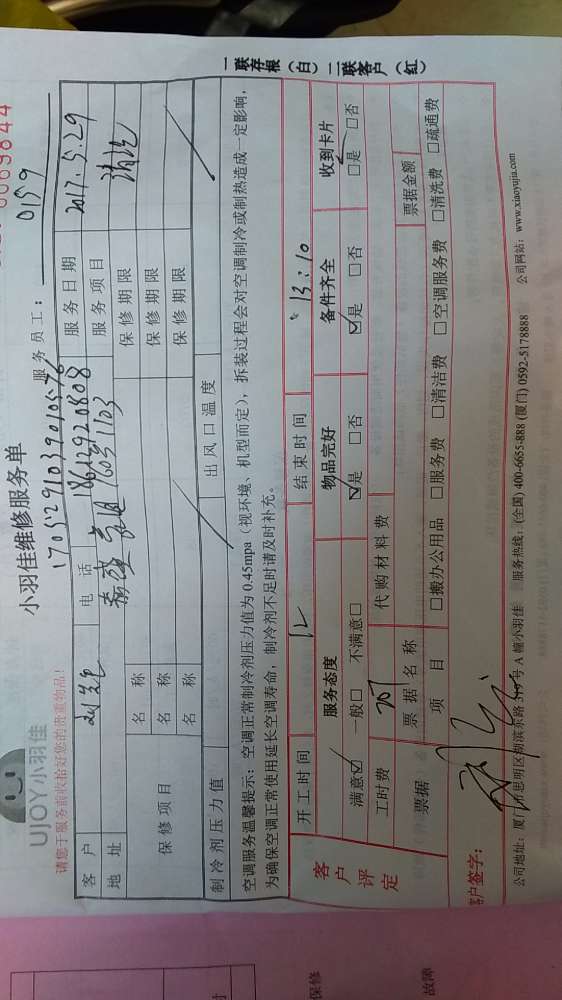 UJOY小羽佳
小羽佳维修服务单
0069844
请您于服务前收拾好您的贵重物品!
1705291039010576
服务员工: 0159
客户 电话 18612920808 服务日期 2017.5.29
地址 1603 1103 服务项目 清洗
保修项目
名称 保修期限
名称 保修期限
名称 保修期限
制冷剂压力值 出风口温度
空调服务温馨提示:空调正常制冷剂压力值为0.45mpa(视环境、机型而定),拆装过程会对空调制冷或制热造成一定影响,
为确保空调正常使用延长空调寿命,制冷剂不足时请及时补充。
开工时间 12 结束时间 13:10
客户评定
服务态度 物品完好 备件齐全 收到卡片
满意☑ 一般□ 不满意□ ☑是 □否 ☑是 □否 □是 □否
工时费 代购材料费
票据 票据名称 票据金额
项目 □搬办公用品 □服务费 □清洁费 □空调服务费 □清洗费 □疏通费
客户签字:
公司地址:厦门市思明区湖滨东路 号A幢小羽佳 服务热线:(全国) 400-6655-888 (厦门) 0592-5178888 公司网站:www.xiaoyujia.com
一联存根(白) 二联客户(红)
保修
故障